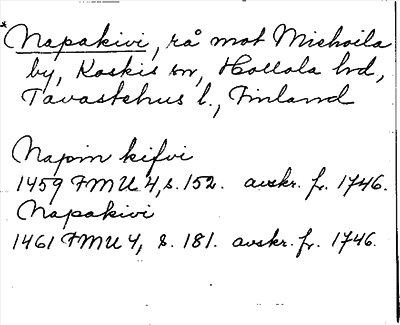 *Napakivi, rå mot Miehoila
by, Koskis sn, Hollola hd,
Tavastehus l., Finland
Napin kifvi
1459 FMU 4, s. 152. avskr. fr. 1746.
Napakivi
1461 FMU 4, s. 181. avskr. fr. 1746.